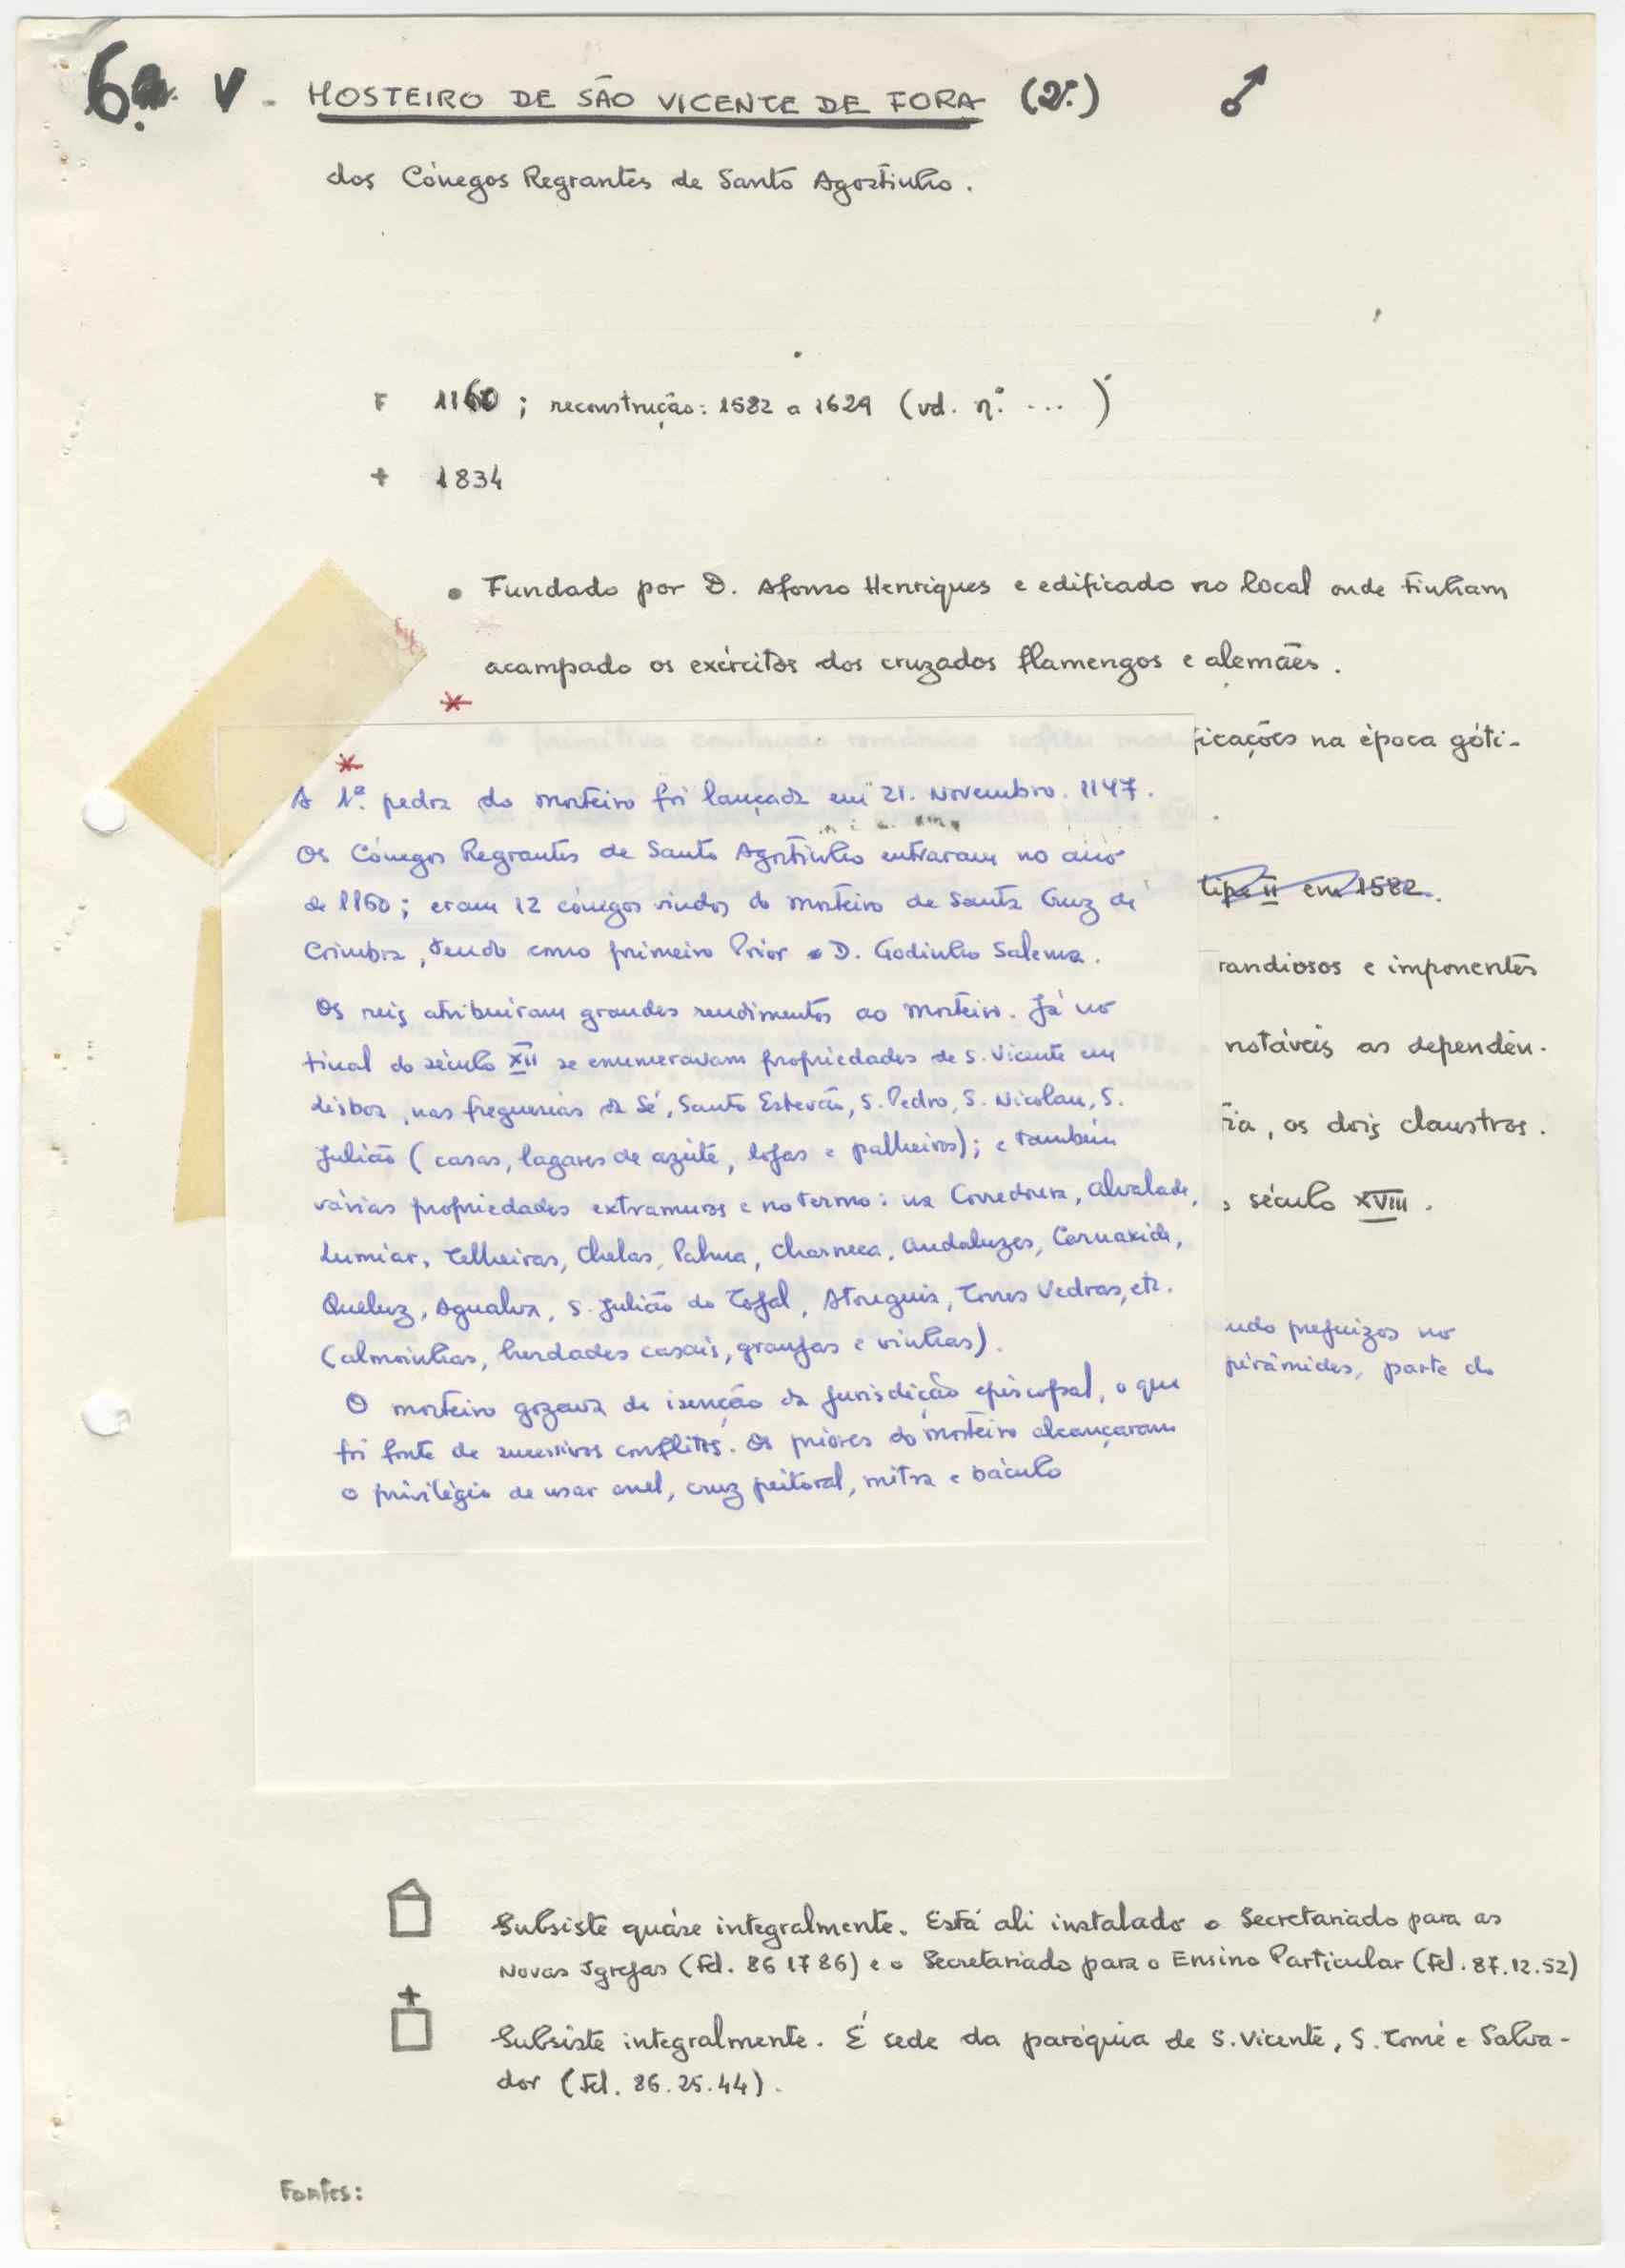 6a. V - MOSTEIRO DE SÃO VICENTE DE FORA (2º.)
dos Cónegos Regrantes de Santo Agostinho.
F 1160 ; reconstrução: 1582 a 1629 (vd. nº. ... )
+ 1834
• Fundado por D. Afonso Henriques e edificado no local onde tinham
acampado os exércitos dos cruzados flamengos e alemães.
*
ficações na época góti-
*
A 1ª. pedra do mosteiro foi lançada em 21. Novembro. 1147.
Os Cónegos Regrantes de Santo Agostinho entraram no ano
de 1160; eram 12 cónegos vindos do mosteiro de Santa Cruz de
Coimbra, tendo como primeiro Prior D. Godinho Salema.
Os reis atribuíram grandes rendimentos ao mosteiro. Já no
final do século XII se enumeravam propriedades de S. Vicente em
Lisboa, nas freguesias da Sé, Santo Estevão, S. Pedro, S. Nicolau, S.
Julião (casas, lagares de azeite, lojas e palheiros); e também
várias propriedades extramuros e no termo: na Corredoura, Alvalade,
Lumiar, Telheiras, Chelas, Palma, Charneca, Andaluzes, Carnaxide,
Queluz, Agualva, S. Julião do Tojal, Atouguia, Torres Vedras, etc.
(almoinhas, herdades casais, granjas e vinhas).
O mosteiro gozava de isenção da jurisdição episcopal, o que
foi fonte de sucessivos conflitos. Os priores do mosteiro alcançaram
o privilégio de usar anel, cruz peitoral, mitra e báculo
lipe II em 1582.
randiosos e imponentes
notáveis as dependên-
ria, os dois claustros.
século XVIII.
ndo prejuizos no
pirâmides, parte do
Subsiste quáse integralmente. Está ali instalado o Secretariado para as
Novas Igrejas (Tel. 86 17 86) e o Secretariado para o Ensino Particular (Tel. 87.12.52)
Subsiste integralmente. É sede da paróquia de S. Vicente, S. Tomé e Salva-
dor (Tel. 86.25.44).
Fontes: